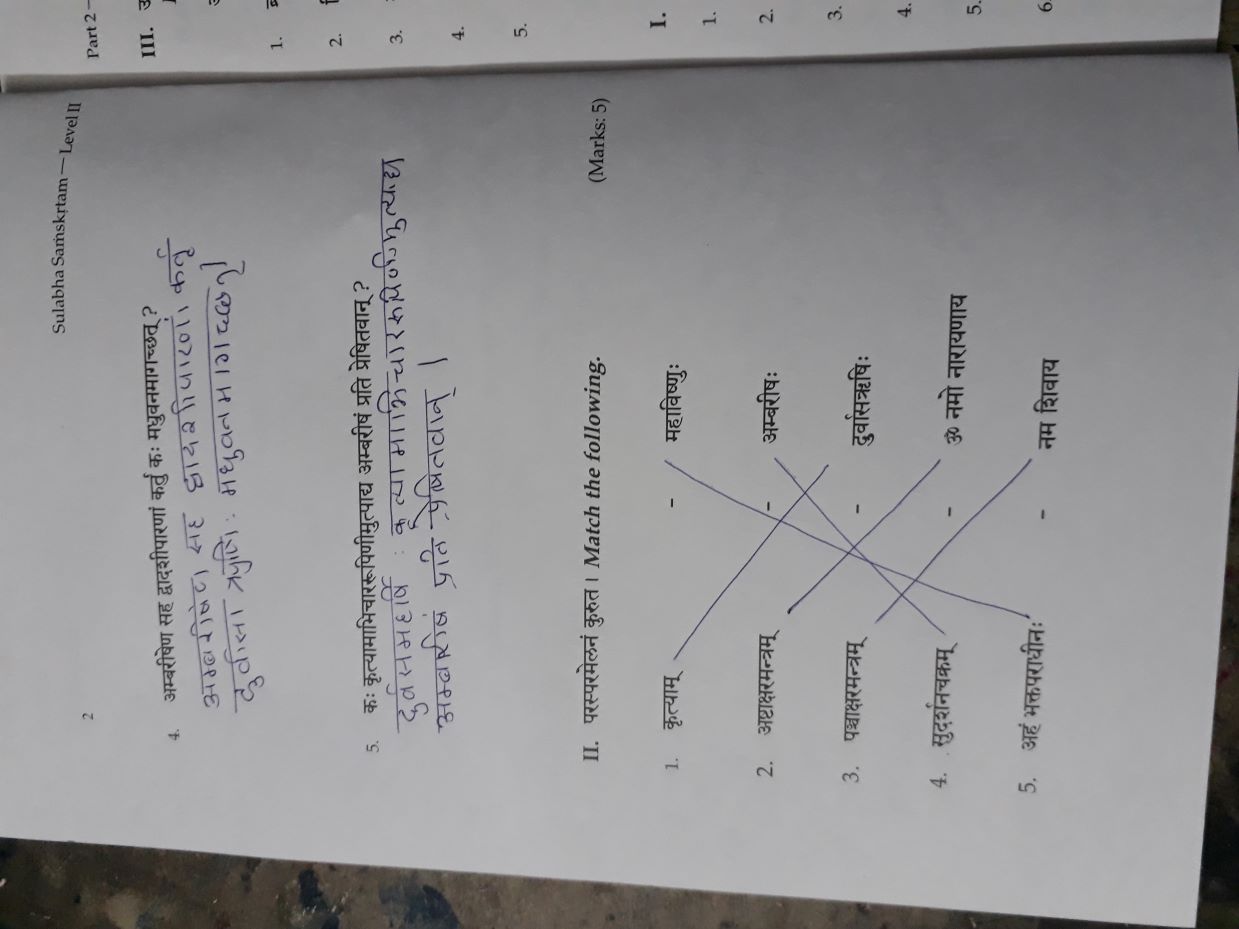 Sulabha Saṁskṛtam — Level II
2
4. अम्बरीषेण सह द्वादशीपारणां कर्तुं कः मधुवनमागच्छत् ?
अम्बरीषेण सह द्वादशीपारणां कर्तृ
दुर्वासा ऋषिः मधुवनमागच्छत् ।
5. कः कृत्यामाभिचाररूपिणीमुत्पाद्य अम्बरीषं प्रति प्रेषितवान् ?
दुर्वसमहर्षिः कृत्यामाभिचाररूपिणीमुत्पाद्य
अम्बरीषं प्रति प्रेषितवान् ।
II. परस्परमेलनं कुरुत । Match the following. (Marks: 5)
1. कृत्याम् - महाविष्णुः
2. अष्टाक्षरमन्त्रम् - अम्बरीषः
3. पञ्चाक्षरमन्त्रम् - दुर्वासऋषिः
4. सुदर्शनचक्रम् - ॐ नमो नारायणाय
5. अहं भक्तपराधीनः - नम शिवाय
Part 2 –
III.
1.
2.
3.
4.
5.
I.
1.
2.
3.
4.
5.
6